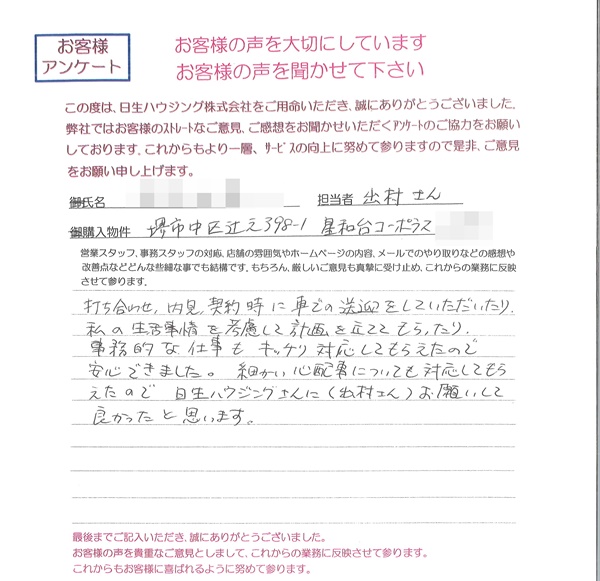 お客様
アンケート
お客様の声を大切にしています
お客様の声を聞かせて下さい
この度は、日生ハウジング株式会社をご用命いただき、誠にありがとうございました。
弊社ではお客様のストレートなご意見、ご感想をお聞かせいただくアンケートのご協力をお願い
しております。これからもより一層、サービスの向上に努めて参りますので是非、ご意見
をお願い申し上げます。
御氏名 担当者 出村さん
御購入物件 堺市中区辻之398-1 星和台コーポラス
営業スタッフ、事務スタッフの対応、店舗の雰囲気やホームページの内容、メールでのやり取りなどの感想や
改善点などどんな些細な事でも結構です。もちろん、厳しいご意見も真摯に受け止め、これからの業務に反映
させて参ります。
打ち合わせ、内見、契約時に車での送迎をしていただいたり、
私の生活事情を考慮して計画を立ててもらったり、
事務的な仕事もキッチリ対応してもらえたので
安心できました。細かい心配事についても対応してもら
えたので日生ハウジングさんに(出村さん)お願いして
良かったと思います。
最後までご記入いただき、誠にありがとうございました。
お客様の声を貴重なご意見としまして、これからの業務に反映させて参ります。
これからもお客様に喜ばれるように努めて参ります。